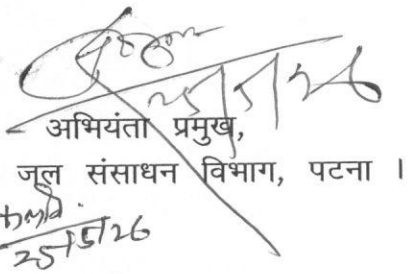 25/5/26
अभियंता प्रमुख,
जल संसाधन विभाग, पटना ।
25/5/26